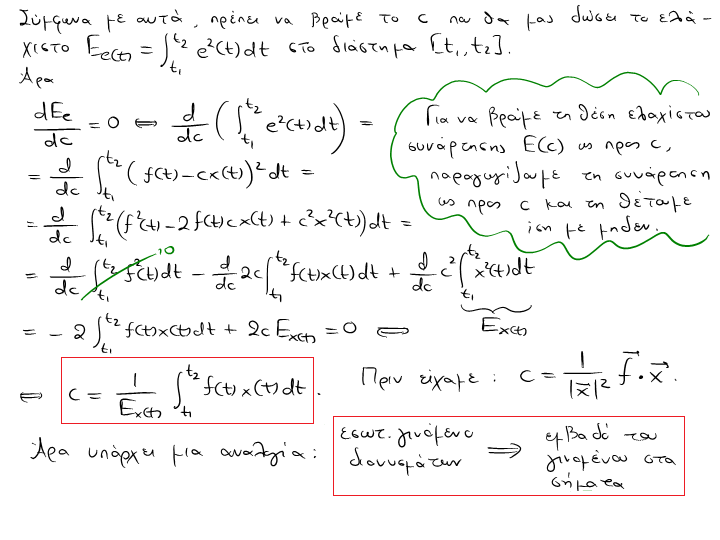 Σύμφωνα με αυτά, πρέπει να βρούμε το c που θα μας δώσει το ελά-
χιστο E_{e(t)} = ∫_{t₁}^{t₂} e²(t) dt στο διάστημα [t₁, t₂].
Άρα
dE_e/dc = 0 ⟺ d/dc ( ∫_{t₁}^{t₂} e²(t) dt ) =
= d/dc ∫_{t₁}^{t₂} ( f(t) - c x(t) )² dt =
= d/dc ∫_{t₁}^{t₂} ( f²(t) - 2 f(t) c x(t) + c² x²(t) ) dt =
= d/dc ∫_{t₁}^{t₂} f²(t) dt ↗0 - d/dc 2c ∫_{t₁}^{t₂} f(t) x(t) dt + d/dc c² ∫_{t₁}^{t₂} x²(t) dt
E_{x(t)}
= - 2 ∫_{t₁}^{t₂} f(t) x(t) dt + 2c E_{x(t)} = 0 ⟺
⟺ c = 1/E_{x(t)} ∫_{t₁}^{t₂} f(t) x(t) dt .
Για να βρούμε τη θέση ελαχίστου
συνάρτησης E(c) ως προς c,
παραγωγίζουμε τη συνάρτηση
ως προς c και τη θέτουμε
ίση με μηδεν.
Πριν είχαμε : c = 1/|x⃗|² f⃗ · x⃗ .
Άρα υπάρχει μια αναλογία :
εσωτ. γινόμενο
διανυσμάτων
⟹
εμβαδό του
γινομένου στα
σήματα